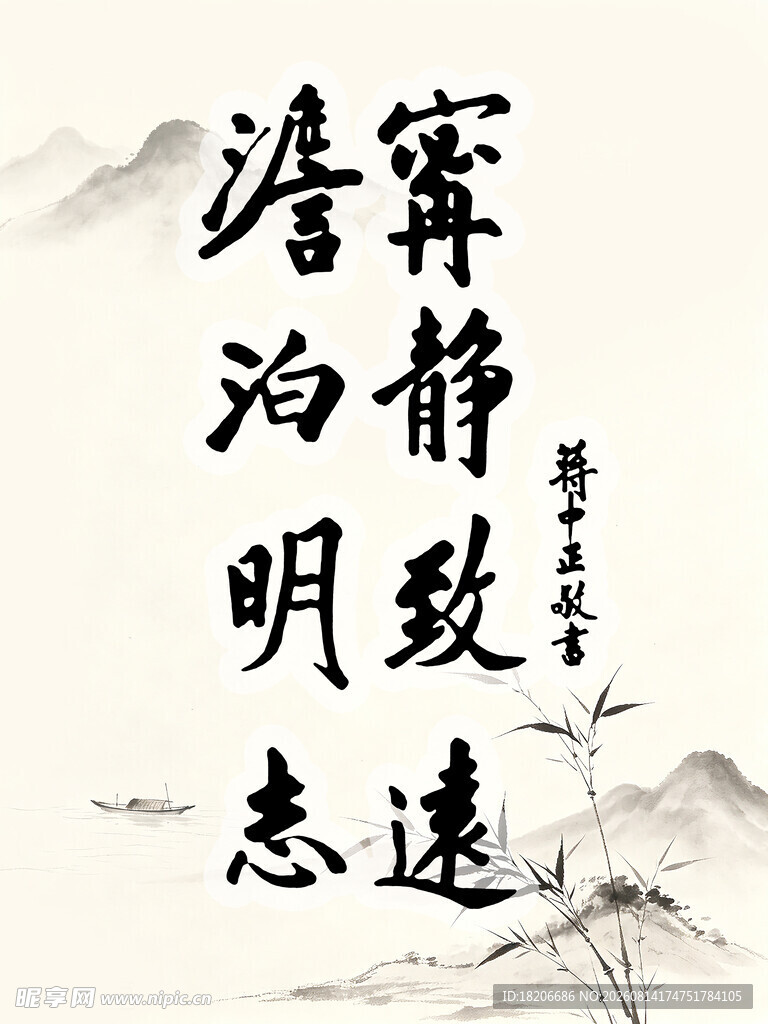 蒋中正敬書
寗靜致遠
澹泊明志
昵享网 www.nipic.cn
ID:18206686 NO:20260814174751784105